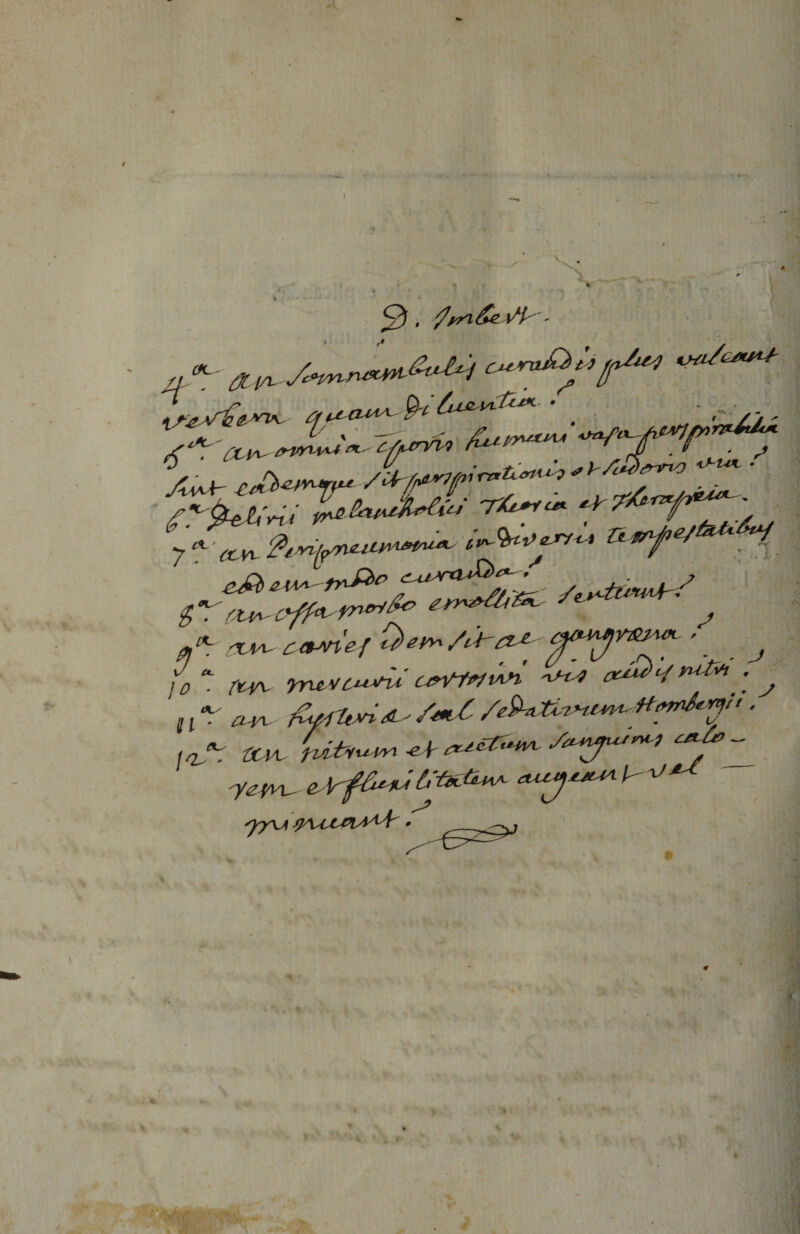 D. Imbert.
4.ª an somnambulis curandis plus valeant
verbera quam diluentia?
5.ª an omnia corporis humani vasa perspirabilia
sint eademque sit perspirationis et sudoris via?
6.ª Delirii melancholici Theoria et Therapeia.
7.ª an Peripneumonia in diversis tempestatibus
eodem modo curanda?
8.ª an ossa morbo emollita sentiunt?
9.ª an caries idem sit ac gangræna?
10.ª an mercurii corrosivi vis acidis nitri?
11.ª an hysteriæ sal sedativum Hombergii?
12.ª an nitrum et acetum sanguinis calo-
rem et fluxilitatem augeant vel
minuant?